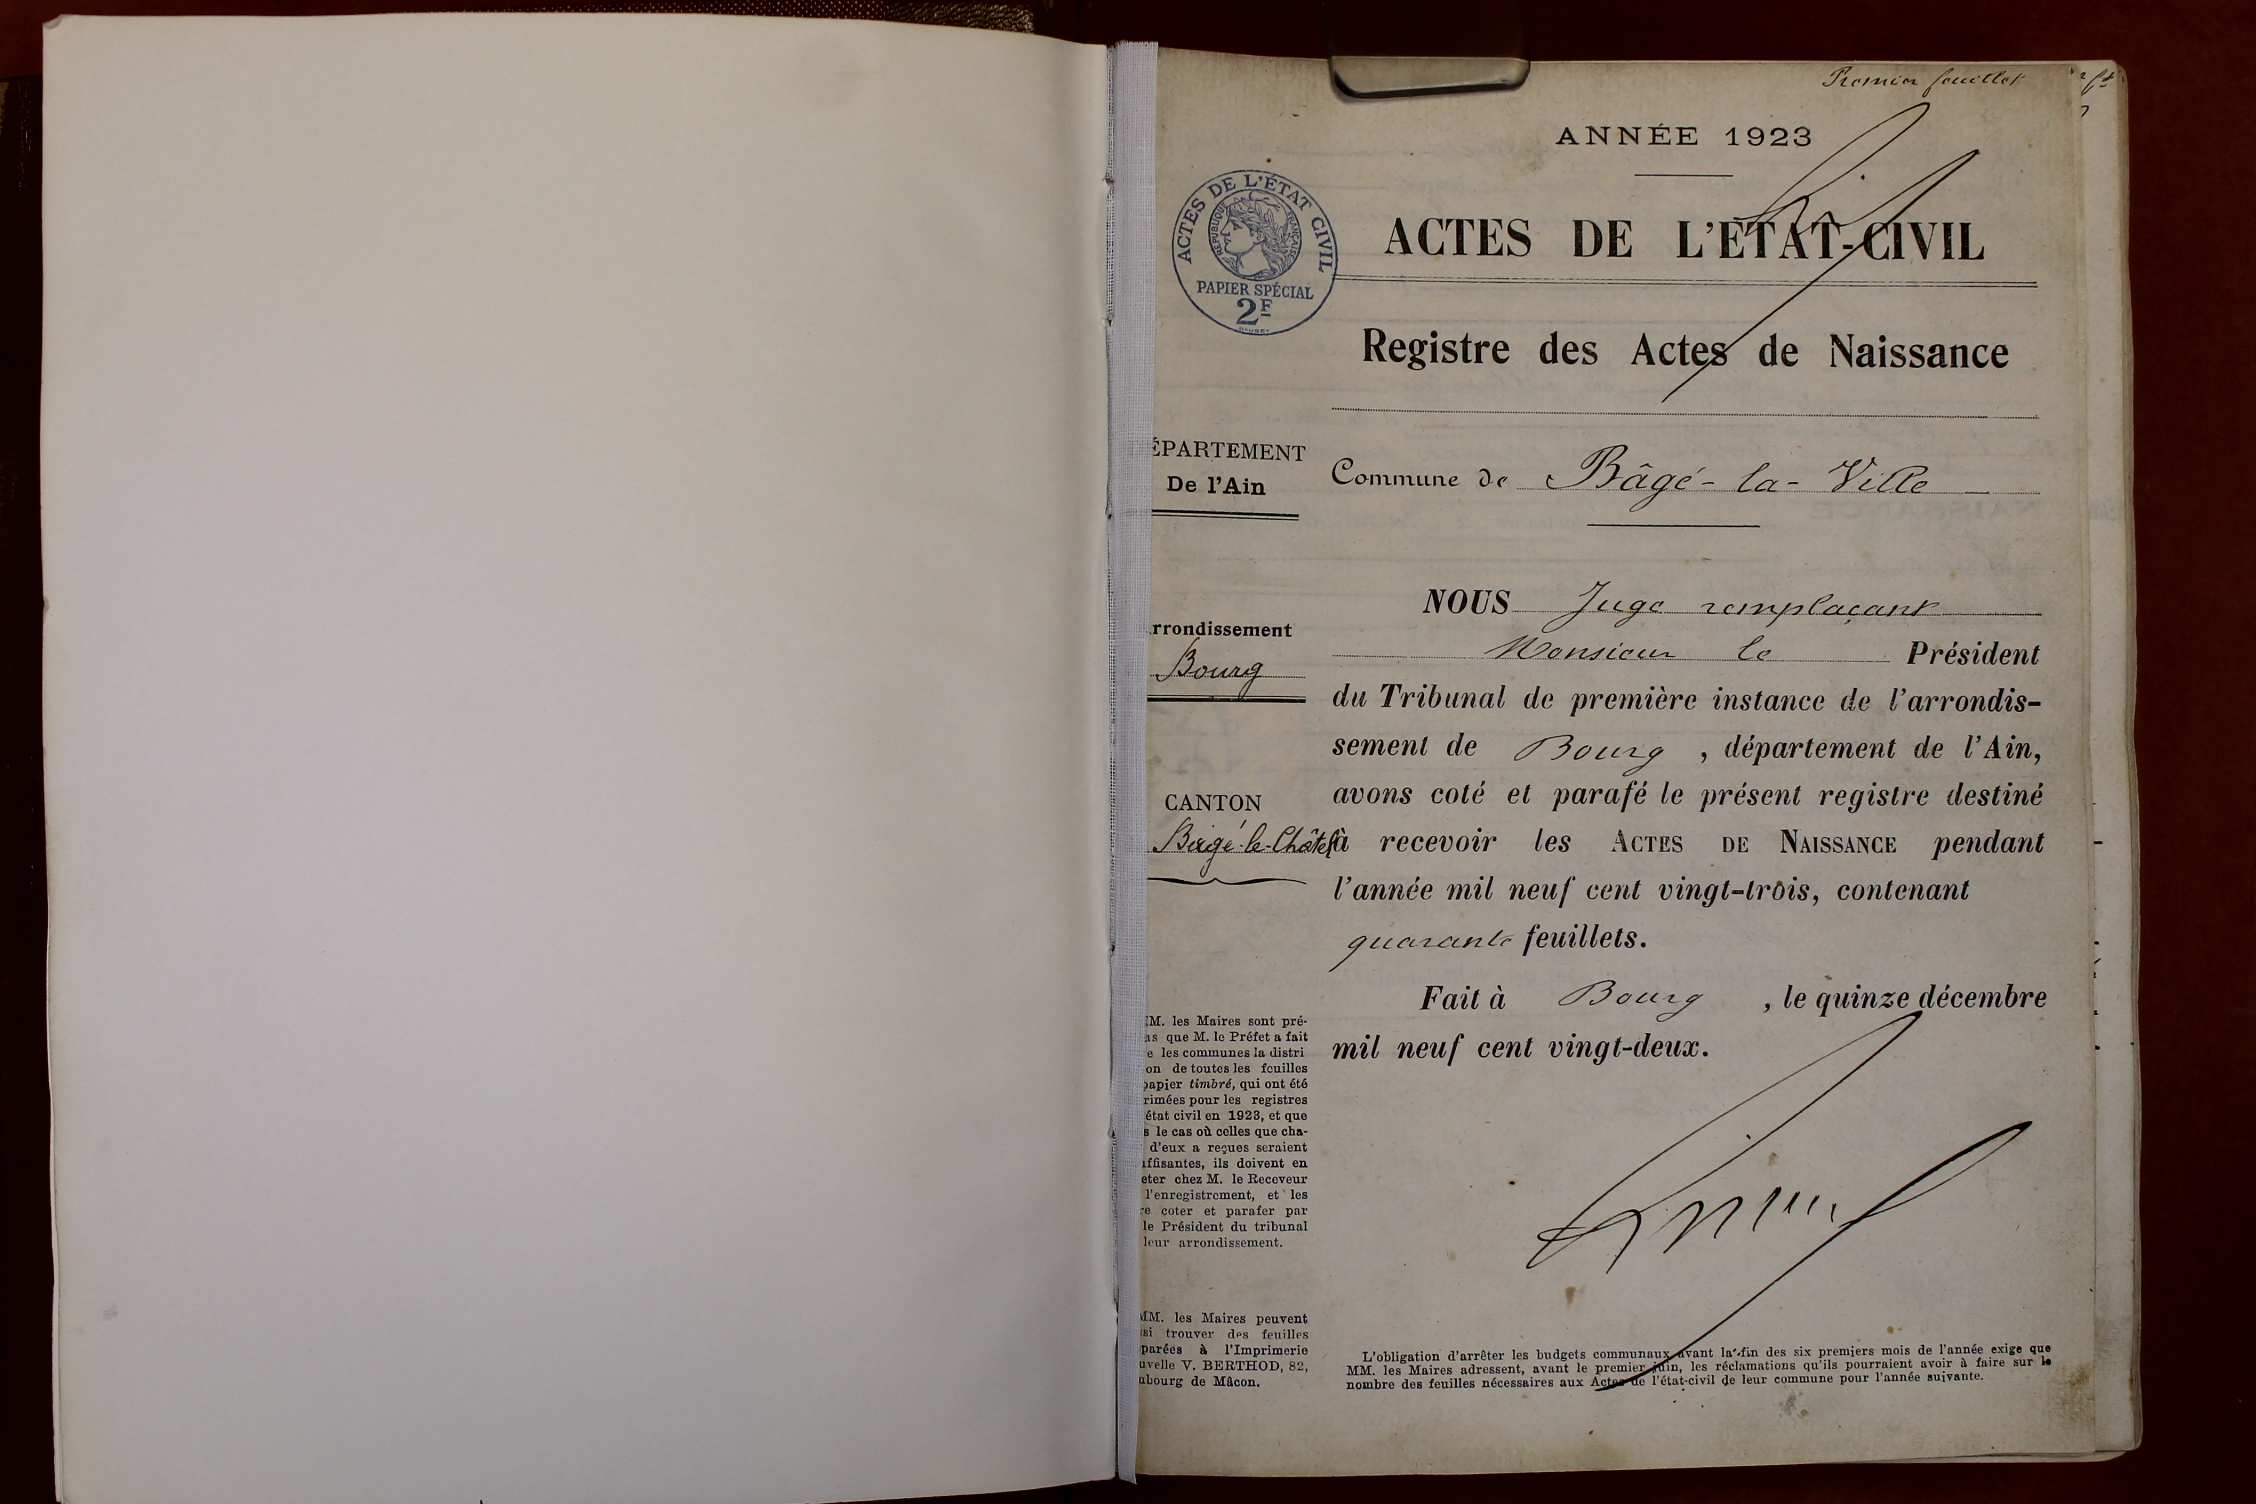 Premier feuillet
ANNÉE 1923
ACTES DE L'ÉTAT CIVIL
RÉPUBLIQUE FRANÇAISE
PAPIER SPÉCIAL
2F
ACTES DE L'ÉTAT-CIVIL
Registre des Actes de Naissance
ÉPARTEMENT
De l'Ain
Commune de Bâgé-la-Ville
NOUS Juge remplaçant
Monsieur le Président
du Tribunal de première instance de l'arrondis-
sement de Bourg, département de l'Ain,
avons coté et parafé le présent registre destiné
à recevoir les ACTES DE NAISSANCE pendant
l'année mil neuf cent vingt-trois, contenant
quarante feuillets.
Fait à Bourg, le quinze décembre
mil neuf cent vingt-deux.
rrondissement
Bourg
CANTON
Bâgé-le-Châtel
MM. les Maires sont pré-
us que M. le Préfet a fait
e les communes la distri
on de toutes les feuilles
papier timbré, qui ont été
rimées pour les registres
état civil en 1923, et que
s le cas où celles que cha-
d'eux a reçues seraient
ffisantes, ils doivent en
eter chez M. le Receveur
l'enregistrement, et les
re coter et parafer par
le Président du tribunal
leur arrondissement.
MM. les Maires peuvent
si trouver des feuilles
parées à l'Imprimerie
uvelle V. BERTHOD, 82,
ubourg de Mâcon.
L'obligation d'arrêter les budgets communaux avant la fin des six premiers mois de l'année exige que
MM. les Maires adressent, avant le premier juin, les réclamations qu'ils pourraient avoir à faire sur le
nombre des feuilles nécessaires aux Actes de l'état-civil de leur commune pour l'année suivante.